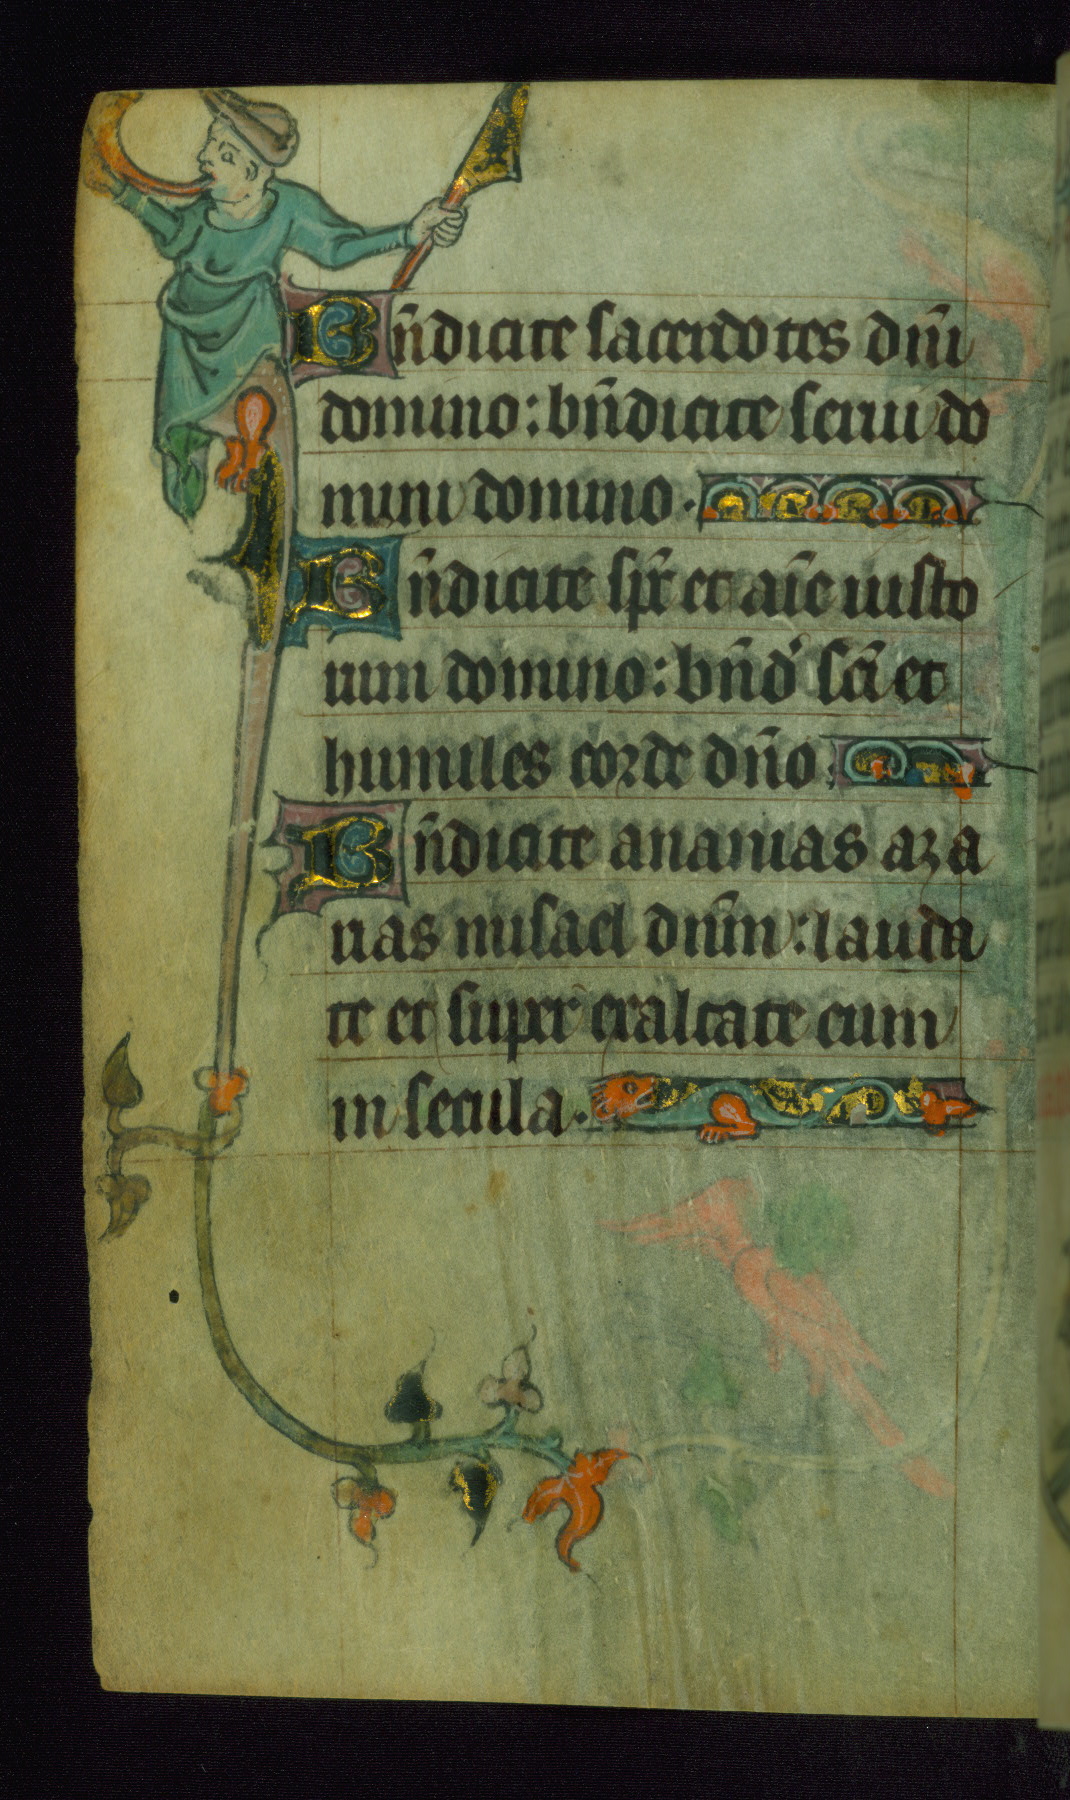 Bn̄dicite sacerdotes dn̄i
domino: bn̄dicite serui do
mini domino.
Bn̄dicite spr̄ et aīe iusto
rum domino: bn̄d' sc̄i et
humiles corde dn̄o.
Bn̄dicite ananias aza
rias misael dn̄m: lauda
te et super exaltate eum
in secula.